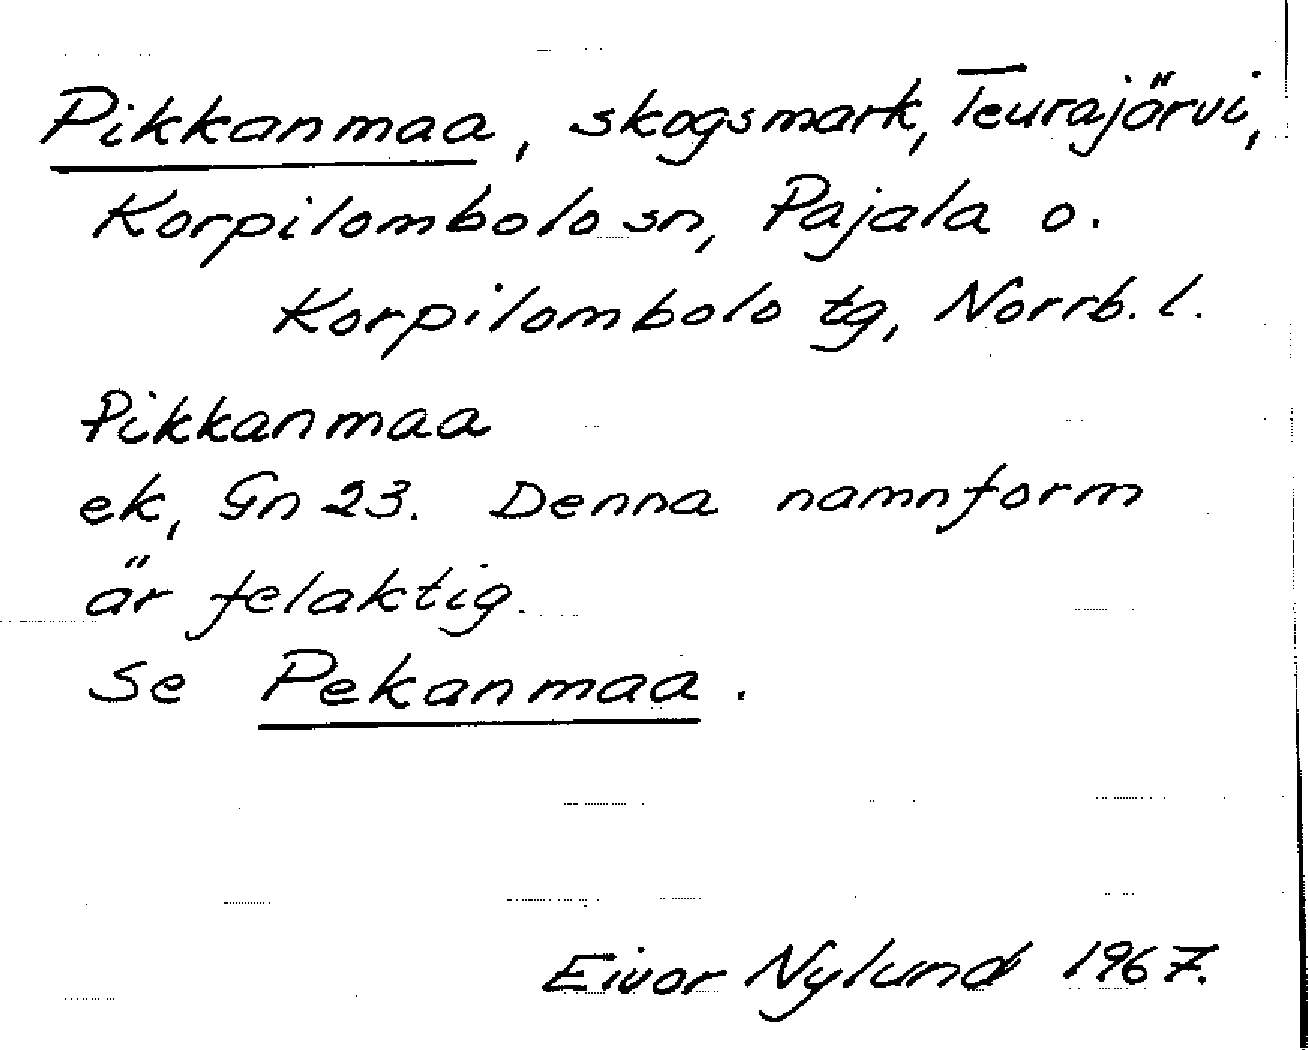 Pikkanmaa, skogsmark, Teurajärvi,
Korpilombolo sn, Pajala o.
Korpilombolo tg, Norrb. l.
Pikkanmaa
ek, Gn 23. Denna namnform
är felaktig.
Se Pekanmaa.
Eivor Nylund 1967.